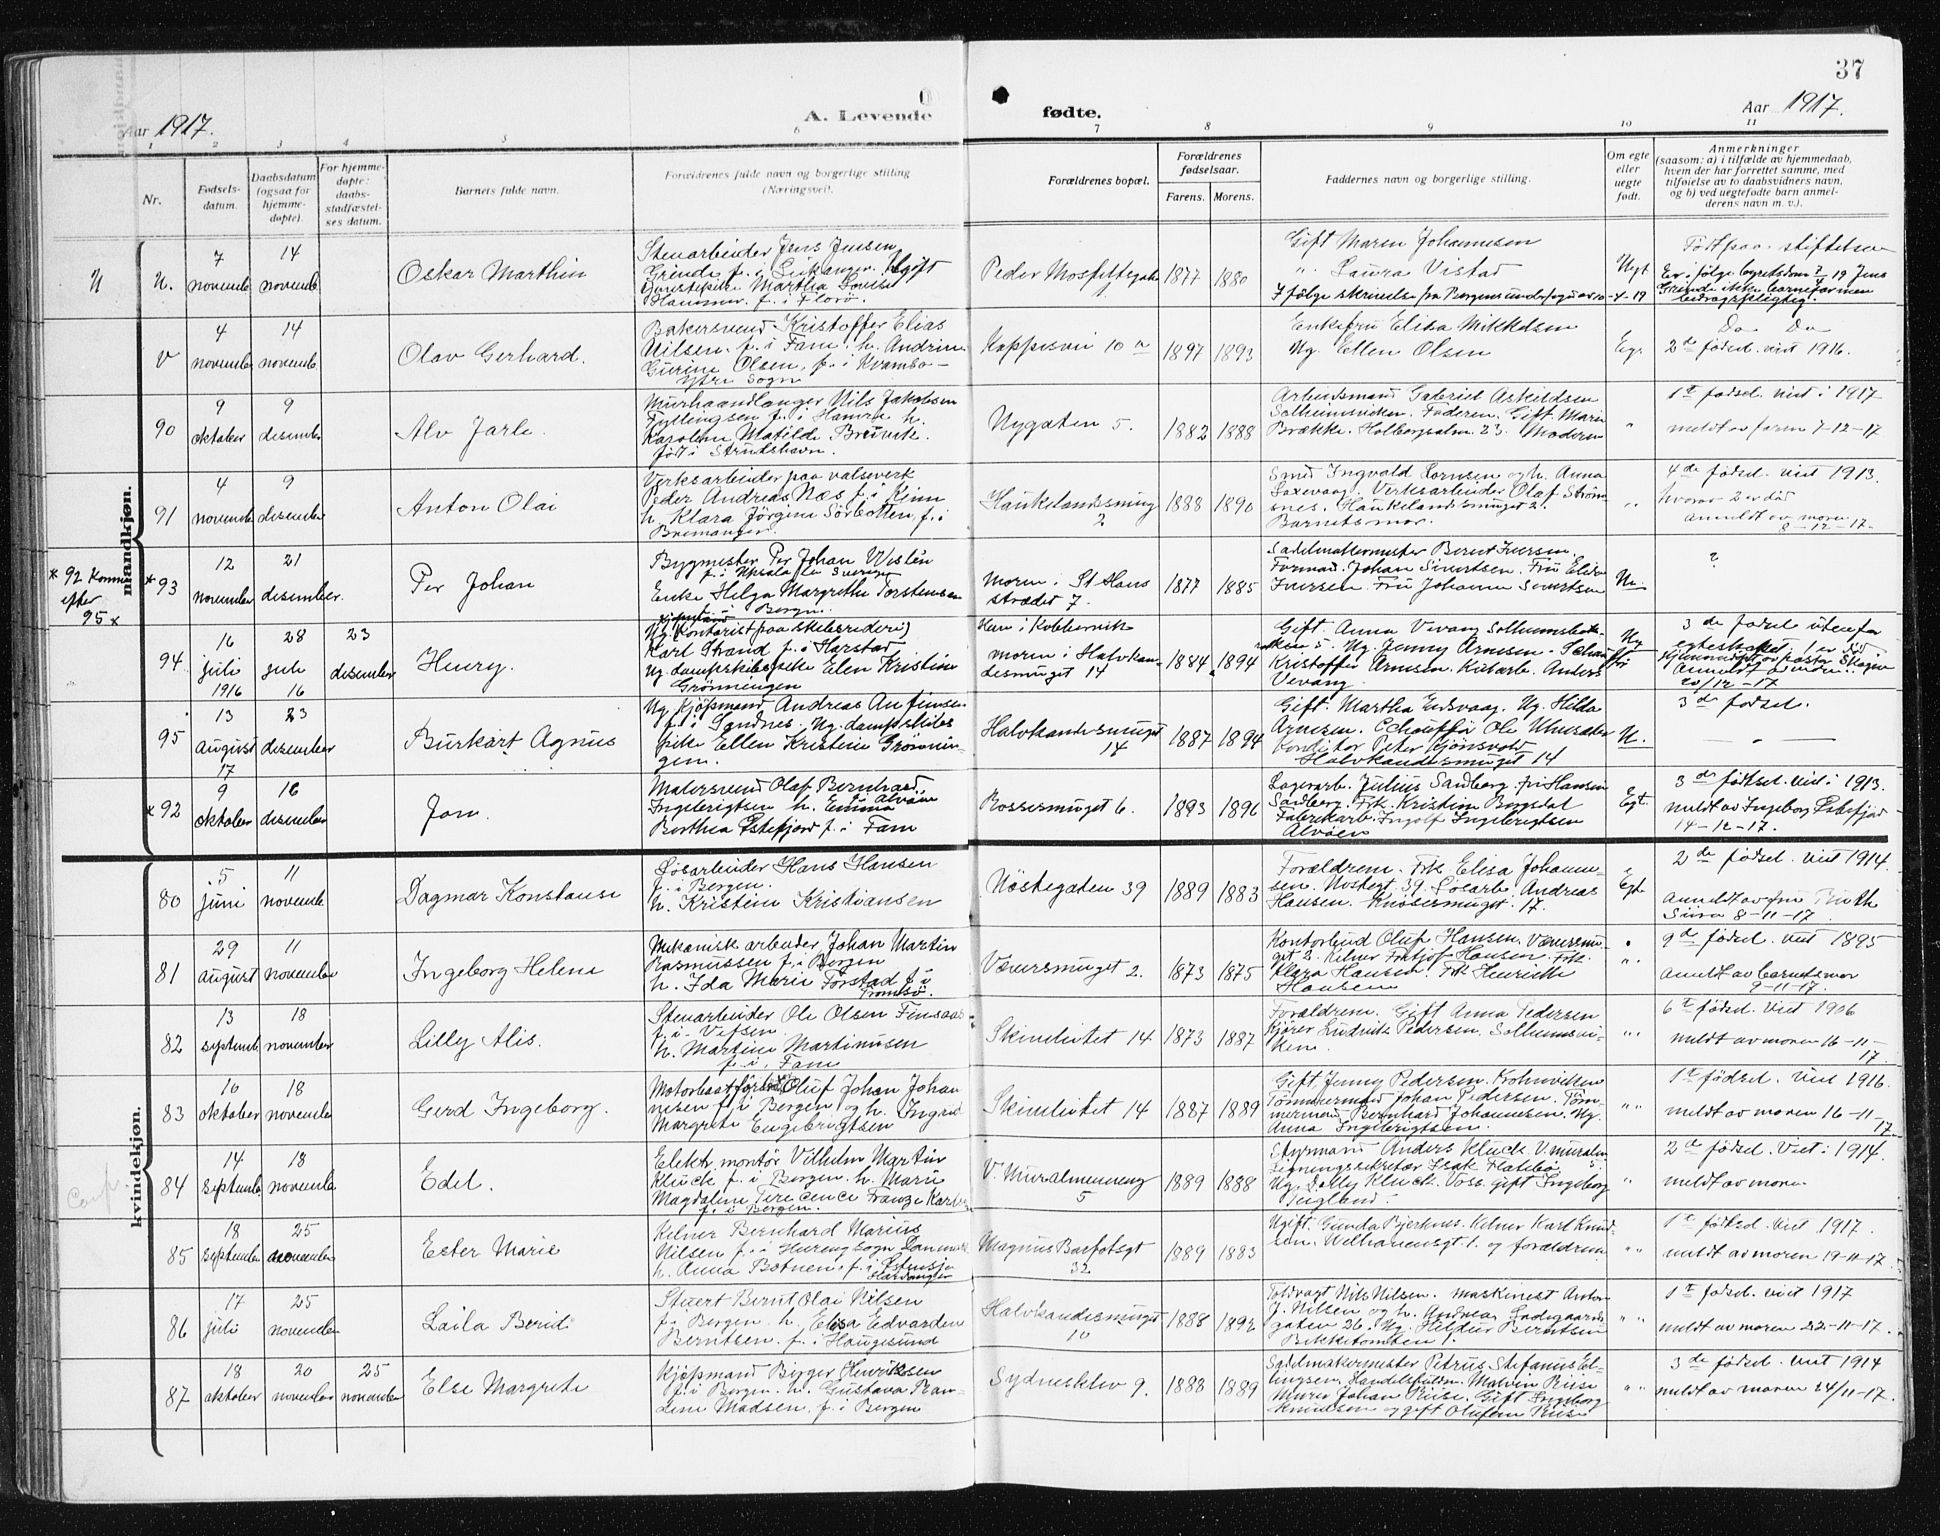 37
Aar 1917.
A. Levende
fødte.
Aar 1917.
1 2 3 4 5 6 7 8 9 10 11
Nr.
Fødsels-
datum.
Daabsdatum
(ogsaa for
hjemme-
døpte).
For hjemme-
døpte:
daabs-
stadfæstel-
ses datum.
Barnets fulde navn.
Forældrenes fulde navn og borgerlige stilling
(Næringsvei).
Forældrenes bopæl.
Forældrenes
fødselsaar.
Farens. Morens.
Faddernes navn og borgerlige stilling.
Om egte
eller
uegte
født.
Anmerkninger
(saasom: a) i tilfælde av hjemmedaab,
hvem der har forrettet samme, med
tilføielse av to daabsvidners navn,
og b) ved uegtefødte barn anmel-
derens navn m. v.).
mandkjøn.
U
U.
7
novembe
14
novembe
Oskar Marthin
Stenarbeider Jens Jensen
Grinde f. i Leikanger. Ugift
Martha Louise
Hammer. f. i Florø.
Peder
1
1877
1880
Gift Maren Johannesen
" Laura Vistad
I følge skrivelse fra
-4-19
Uegt
Født paa stiftelsen
Grinde ikke barnefar men
bidragspligtig.
V
4
novembe
14
novembe
Olav Gerhard.
Bakersvend Kristoffer Elias
Nilsen. f. i Fane. h. Andrine
Gurine Olsen, f. i Kvamsø-
Ytre Sogn
10 a
1897
1893
Enkefru Elisa Mikkelsen
Ug. Ellen Olsen
Egt.
Do Do
2de fødsel. viet 1916.
90
9
oktober
9
desembe
Alv Jarle.
Murhaandlanger Nils Jakobsen
Fyllingsen f. i Hamre h.
Karoline Matilde Breivik.
født i Strudshavn.
Nygaten 5.
1882
1888
Arbeidsmand Gabriel Askildsen
Solheimsviken. Faderen. Gift Marie
Brække. Holbergsalm. 23. Moderen
"
1ste fødsel. viet i 1917
meldt av faren 7-12-17
91
4
novembe
9
desember
Anton Olai
Verksarbeider paa valseverk
Peder Andreas Næs f. i Kinn
h. Klara Jörgine Sörbotten f. i
Bremanger.
Haukelandssmug
2
1888
1890
Smed Ingvald
h. Anna
Saxevaag. Verksarbeider Olaf Ström
snes. Haukelandsmuget 2.
Barnets mor.
"
4de fødsel. viet 1913.
hvorav 2 er död
anmeldt av moren
8-12-17.
* 92 kommer
efter
95 x
*93
12
november
21
desember.
Per Johan
Bygmester Per Johan Wislén
f. i Upsala len Sverige
Enke Helga Margrethe Torstensen
f. i Bergen.
Moren i St Hans
strædet 7.
1877
1885
Sadelmakermester Bernt Iversen.
Formand. Johan Sivertsen. Fru Elise
Iversen. Fru Johanne Sivertsen
U.
?
94.
16
juli
1916
28
juli
16
23
desember
Henry.
Ug. Kontorist paa skibsrederi)
Karl Strand f. i Harstad.
Ug. dampskibspike Elen Kristine
Grönningen
Han i Kobbervik
moren i Halvkan-
desmuget 14
1884
1894
Gift. Anna Vevang
Ug. Jenny Arnesen.
Kristoffer Arnesen. Anders
Vevang.
3de fødsel utenfor
egteskapet. 1 er död
20/12-17
95
13
august
17
23
desember
Burkart Agnus
Ug. Kjøpmand Andreas Anfinsen
f. i Sandnes. Ug. dampskibs
pike Ellen Kristine Grönnin-
gen.
Halvkandesmuget
14
1887
1894
Gift. Martha Endsvaag. Ug. Hilda
Arnesen. Ole
Konditor Peter
Halvkandesmuget 14
U.
3de fødsel.
— " —
*92
9
oktober
16
desember
Jon.
Malersvend Olaf Bernhard
Ingebrigtsen h. Emma
Alvöen
Borthea Estefjord f. i Fane
Rossesmuget 6.
1893
1896
Lagerarb. Julius Sandberg. fru Hansine
Sandberg. Frk. Kristine Bergsdal
Fabrikarb. Ingolf Ingebrigtsen
Alvöen
Egt.
3de fødsel. viet i 1913.
meldt av Ingeborg Estefjord
14-12-17.
kvindekjøn.
80
5
juni
11
novembe
Dagmar Konstanse
Løsarbeider Hans Hansen
f. i Bergen.
h. Kristine Kristiansen
Nöstegaten 39
1889
1883
Forældrene. Frk Elisa Johann-
sen. Nostegt 39. Løsarb. Andreas
Hansen. Knösesmuget. 17.
Egt.
2de fødsel. viet 1914.
anmeldt av fru Ruth
8-11-17.
81
29
august
11
november
Ingeborg Helene
Mekanisk arbeider Johan Martin
Rasmussen f. i Bergen
h. Ida Marie Förstad f. i
Tromsö.
2.
1873
1875
Kontorbud Oluf Hansen.
get 2. Kelner Fritjof Hansen. Frk.
Klara Hansen. Frk Henrikke
Hansen
"
9de fødsel. viet 1895
anmeldt av barnets mor
9-11-17.
82
13
septemb.
18
november
Lilly Alis.
Stenarbeider Ole Olsen Finsaas
f. i Vefsen.
h. Martine Martinusen
f. i. Fane
Skivebakken 14
1873
1887
Forældrene. Gift Anna Pedersen
Kjörer Ludvik Pedersen. Solheimsvi-
ken.
"
6te fødsel. viet 1906
meldt av moren 16-11-
17.
83
10
oktober
18
novembe
Gerd Ingeborg.
Motorbaatförer Oluf Johan Johan
nesen f. i Bergen og h. Ingrid
Margrete Engebrigtsen
14
1887
1889
Gift. Jenny Pedersen.
Tömmermand Johan Pedersen. Töm-
mermand Bernhard Johannesen. Ug.
Anna Ingebrigtsen.
"
1ste fødsel. viet 1916.
meldt av moren 16-11-
17.
84
14
septembe
18
novembe
Edel.
Elektr. montör Vilhelm Martin
Kluck f. i Bergen. h. Marie
Magdalene
f. i Bergen.
V. Muralmenneng
5
1889
1888
Styrmand Anders Kluck V. muralm
5
Isak Flatebø.
Ug. Dolly Kluck. Voss. gift Ingeborg
Teigland.
"
2de fødsel. Viet i 1914.
meldt av moren
85
18
september
25
november
Ester Marie
Kelner Bernhard Marius
Nilsen f. i sogn Danmark
h. Anna Botnen f. i
Hardanger
Magnus Barfotsgt
32
1889
1883
Ugift. Gunda Bjerknes. Kelner Karl Knud
sen. Welhavensgt 1. og forældrene
"
1ste fødsel. viet 1917.
meldt av moren 19-11-17.
86
17
juli
25
november
Laila Berid
Stuert Bernt Olai Nilsen
f. i Bergen h. Elisa Edvarden
Berntsen. f. i Haugesund
Halvkandesmuget
10
1888
1892
Toldvagt Nils Nilsen. Maskinist Anton
J. Nilsen og h. Andrea, Ladegaards
gaten 26. Ug. Hildur Berntsen
1.
"
1ste fødsel. viet 1917
meldt av moren 22-11-17.
87
18
oktober
20
november
25
november
Else Margrete
Kjöpmand Birger Henriksen
f. i Bergen. h. Gustava
Madsen. f. i Bergen
Sydneskleiv 9.
1888
1889
Sadelmakermester Petrus Stefanus El-
lingsen. Malvin Riise
Johan Riise. Gift Ingeborg
Knudsen og gift Riise
"
3de fødsel. viet 1914
meldt av moren 24/11-17.